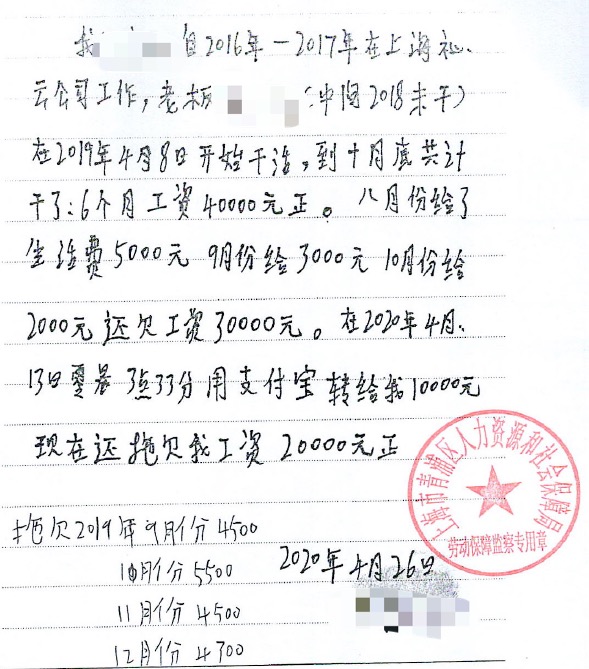 我 自2016年-2017年在上海礼.
云公司工作,老板 (中间2018未干)
在2019年4月8日开始干活,到十月底共计
干了:6个月工资40000元正。八月份给了
生活费5000元 9月份给3000元 10月份给
2000元还欠工资30000元。在2020年4月.
13日零晨3点33分用支付宝转给我10000元
现在还拖欠我工资20000元正
拖欠2019年9月份4500
10月份5500
11月份4500
12月份4300
2020年4月26日
上海市青浦区人力资源和社会保障局
劳动保障监察专用章